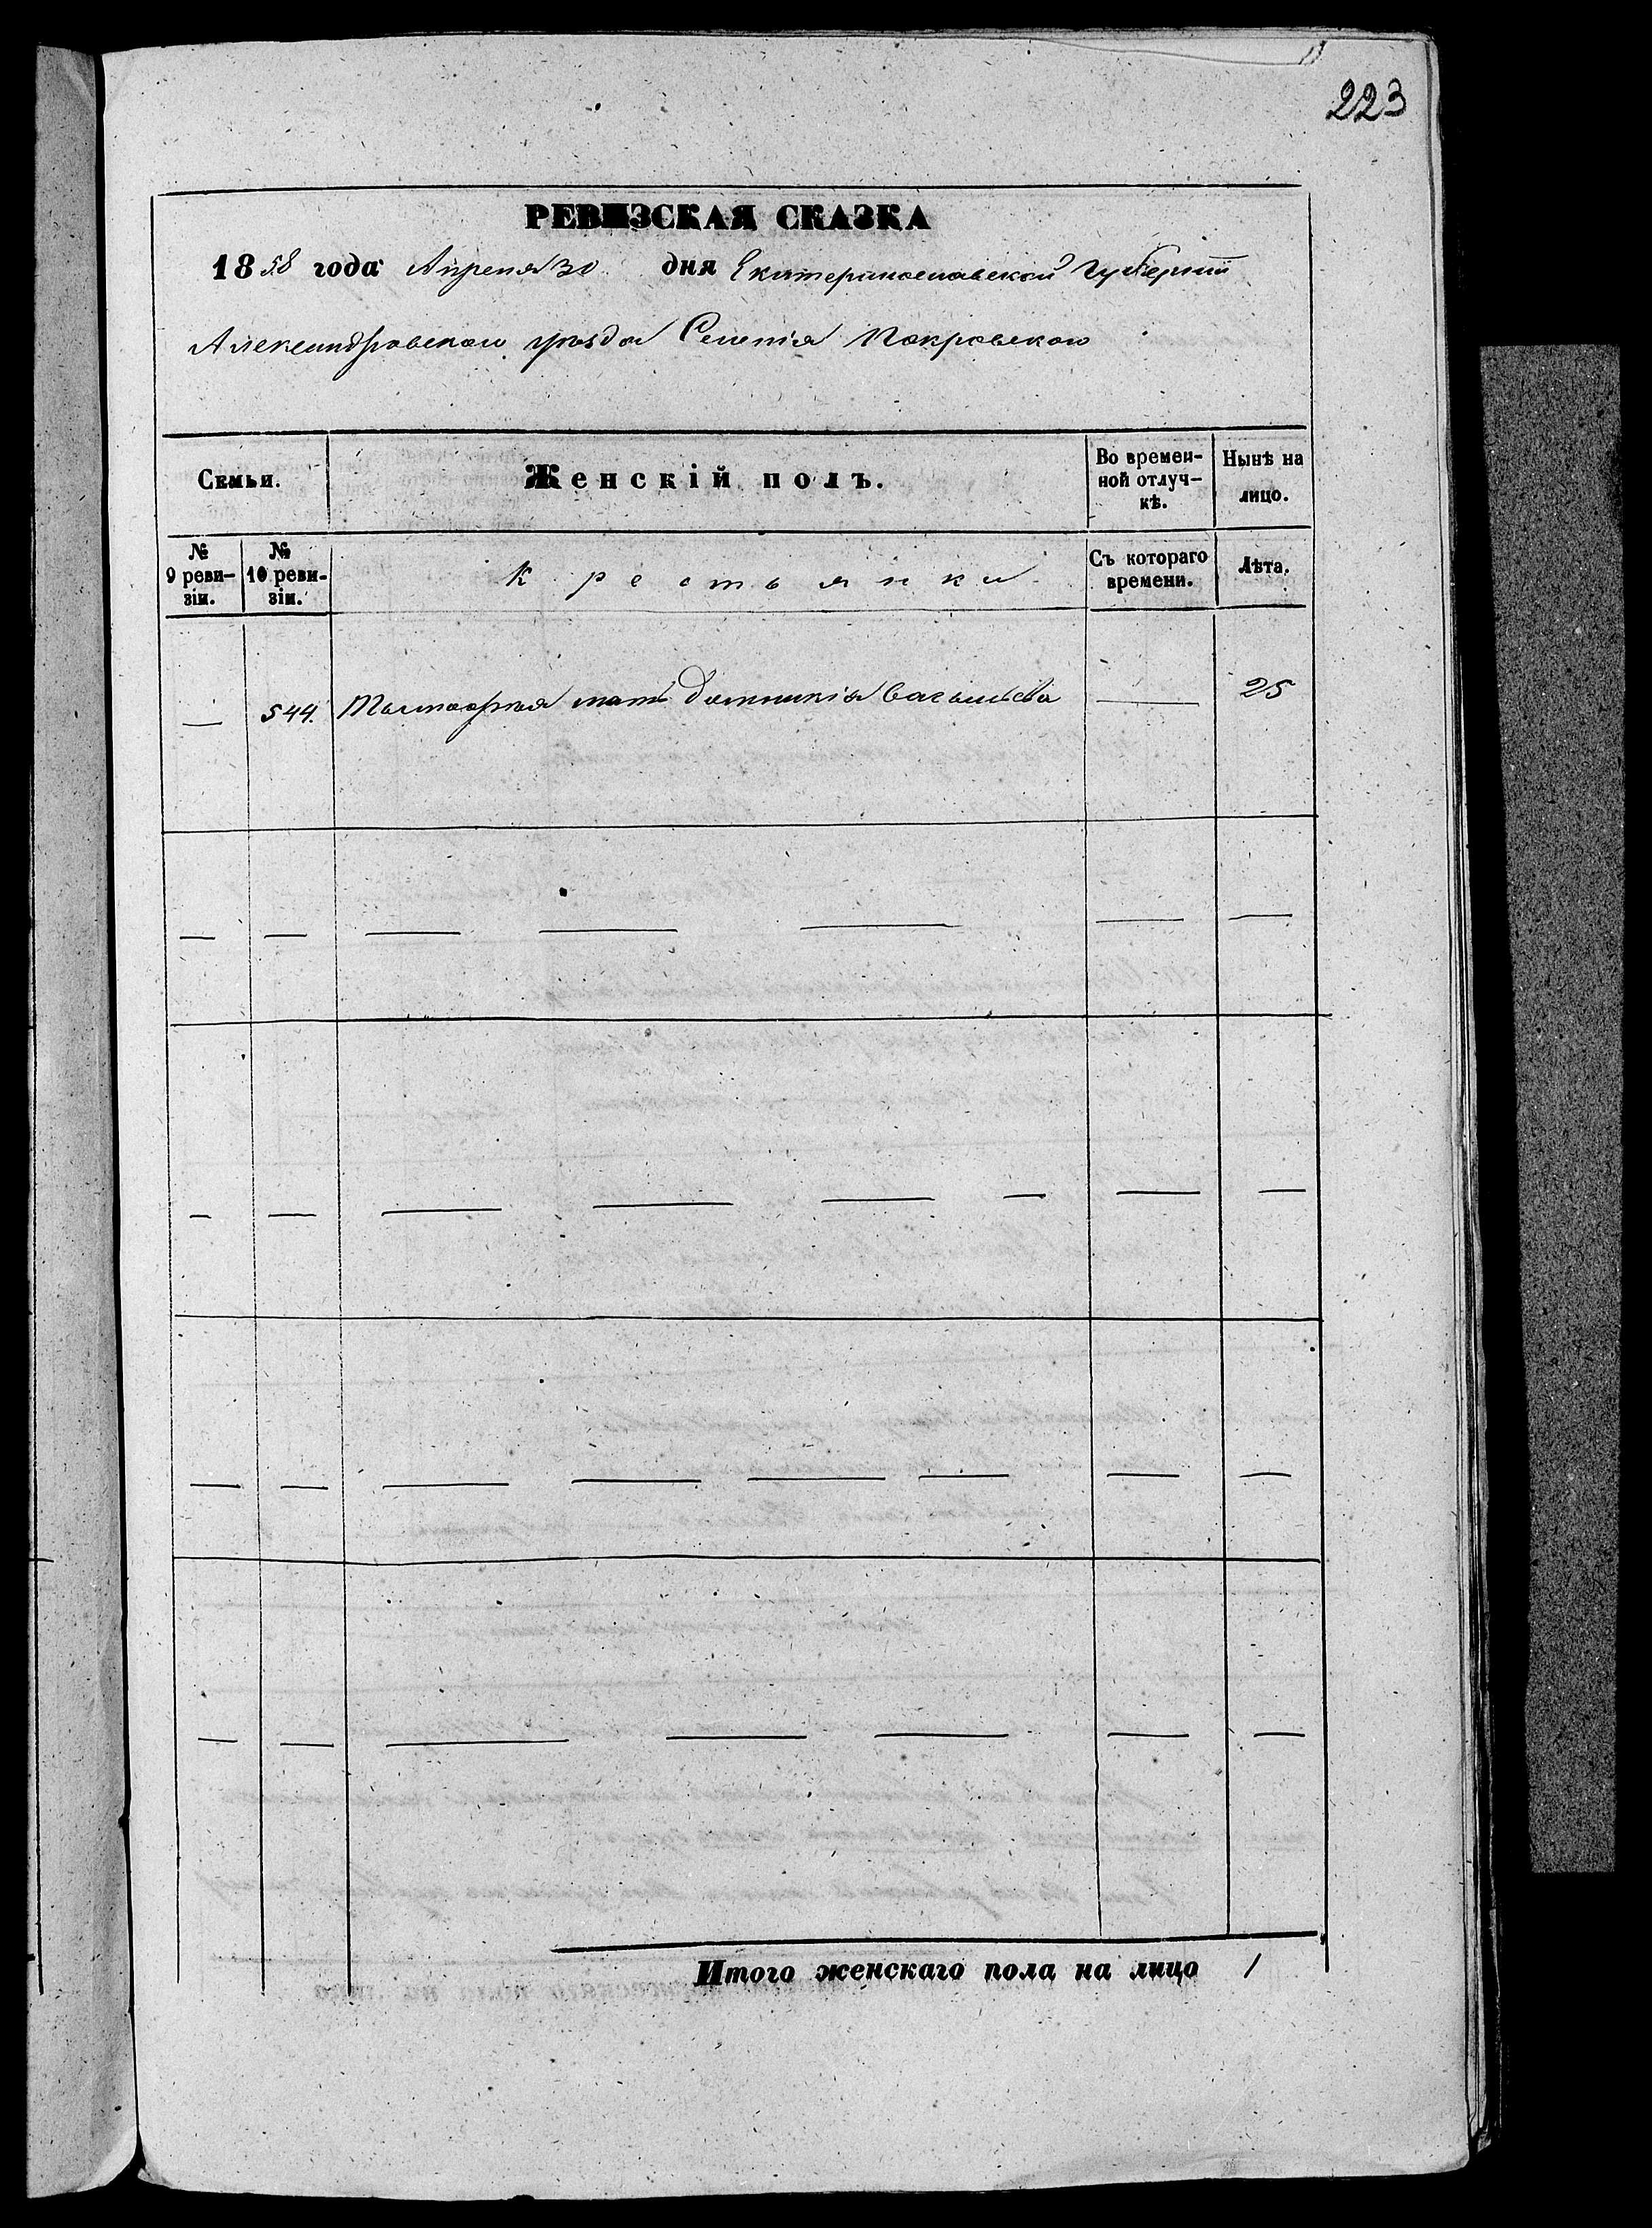 223
РЕВИЗСКАЯ СКАЗКА
1858 года Апреля 30 дня Екатеринославской Губерніи
Александровскаго уѣзда Селенія Покровскаго
Семьи.
Женскій полъ.
Во времен-
ной отлуч-
кѣ.
Нынѣ на
лицо.
№
9 реви-
зіи.
№
10 реви-
зіи.
Крестьянки
Съ котораго
времени.
Лѣта.
— 544. мать Домникія Васильева — 25
Итого женскаго пола на лицо 1